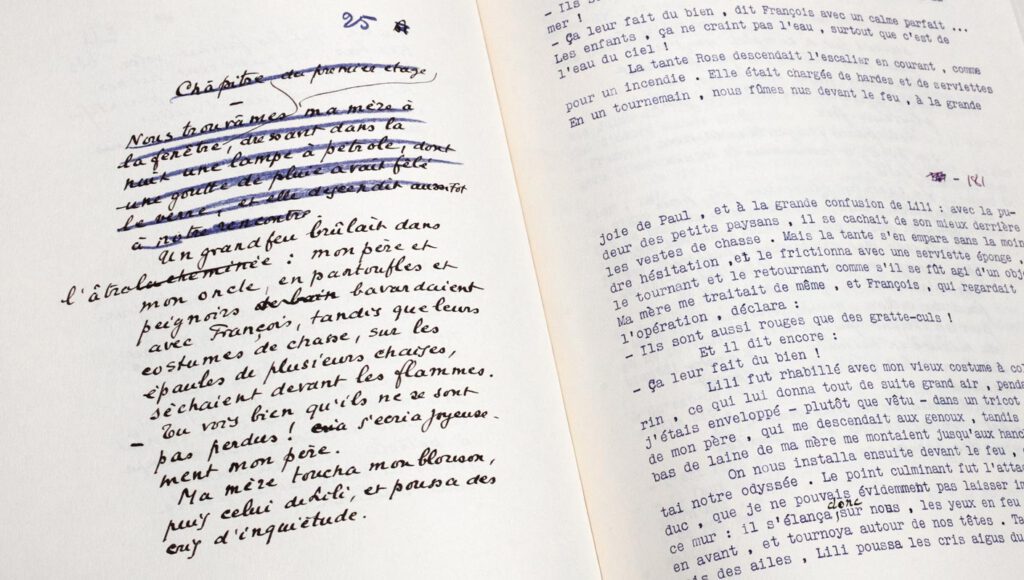 25
Châpitre du premier étage
Nous trouvâmes ma mère à
la fenêtre, dressant dans la
nuit une lampe à pétrole, dont
une goutte de pluie avait fêlé
le verre, et elle descendit aussitôt
à notre rencontre
Un grand feu brûlait dans
l'âtre la cheminée : mon père et
mon oncle, en pantoufles et
peignoirs de bain bavardaient
avec François, tandis que leurs
costumes de chasse, sur les
épaules de plusieurs chaises,
séchaient devant les flammes.
- Tu vois bien qu'ils ne se sont
pas perdus ! s'écria joyeuse-
ment mon père.
Ma mère toucha mon blouson,
puis celui de Lili, et poussa des
cris d'inquiétude.
- Ils s
mer !
- Ça leur fait du bien , dit François avec un calme parfait ...
Les enfants , ça ne craint pas l'eau , surtout que c'est de
l'eau du ciel !
La tante Rose descendait l'escalier en courant , comme
pour un incendie . Elle était chargée de hardes et de serviettes
En un tournemain , nous fûmes nus devant le feu , à la grande
- 181
joie de Paul , et à la grande confusion de Lili : avec la pu-
deur des petits paysans , il se cachait de son mieux derrière
les vestes de chasse . Mais la tante s'en empara sans la moin
dre hésitation ,et le frictionna avec une serviette éponge ,
le tournant et le retournant comme s'il se fût agi d'un obj
Ma mère me traitait de même , et François , qui regardait
l'opération , déclara :
- Ils sont aussi rouges que des gratte-culs !
Et il dit encore :
- Ça leur fait du bien !
Lili fut rhabillé avec mon vieux costume à col
rin , ce qui lui donna tout de suite grand air , penda
j'étais enveloppé - plutôt que vêtu - dans un tricot
de mon père , qui me descendait aux genoux , tandis
bas de laine de ma mère me montaient jusqu'aux hanc
On nous installa ensuite devant le feu ,
tai notre odyssée . Le point culminant fut l'atta
duc , que je ne pouvais évidemment pas laisser im
ce mur : il s'élança donc sur nous , les yeux en feu
en avant , et tournoya autour de nos têtes . Ta
is des ailes , Lili poussa les cris aigus du